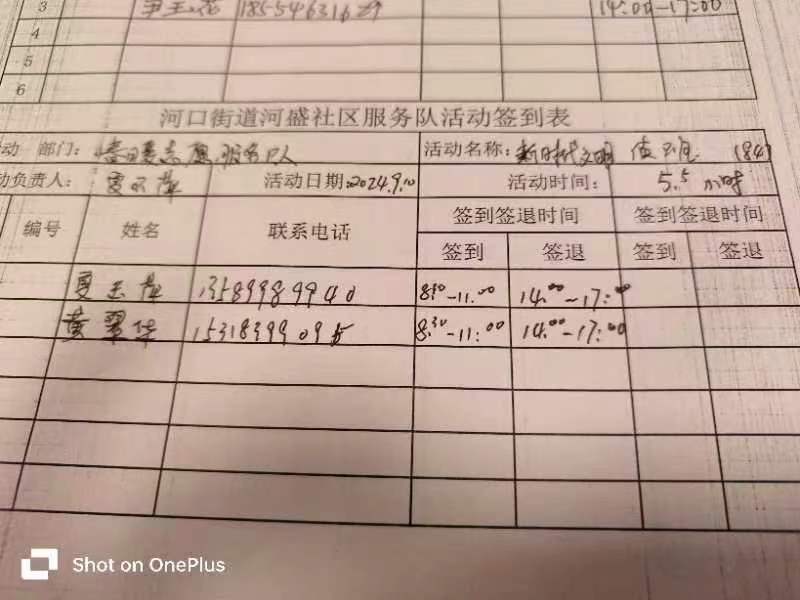 3 18554631629 14:00-17:00
4
5
6
河口街道河盛社区服务队活动签到表
动 部门: 志愿服务队 活动名称: 新时代文明 值班 (84)
动负责人: 夏玉萍 活动日期: 2024.9.10 活动时间: 5.5 小时
编号 姓名 联系电话 签到签退时间 签到签退时间
签到 签退 签到 签退
夏玉萍 13589989940 8:30-11:00 14:00-17:00
黄翠华 15318399095 8:30-11:00 14:00-17:00
Shot on OnePlus